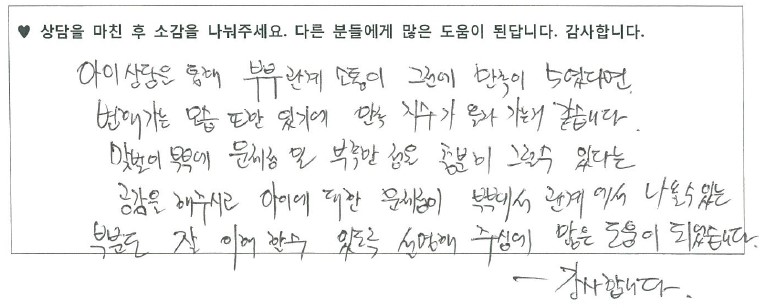 ♥ 상담을 마친 후 소감을 나눠주세요. 다른 분들에게 많은 도움이 된답니다. 감사합니다.
아이상담은 통해 부부관계 소통이 그전에 만족이 5였다면
변해가는 모습 또한 있기에 만족 지수가 올라 가는거 같습니다.
맞벌이 부부에 문제점 및 부족한 점도 충분히 그럴수 있다는
공감을 해주시고 아이에 대한 문제점이 부부에서 관계에서 나올수있는
부분도 잘 이해 할수 있도록 설명해 주심에 많은 도움이 되었습니다.
- 감사합니다.